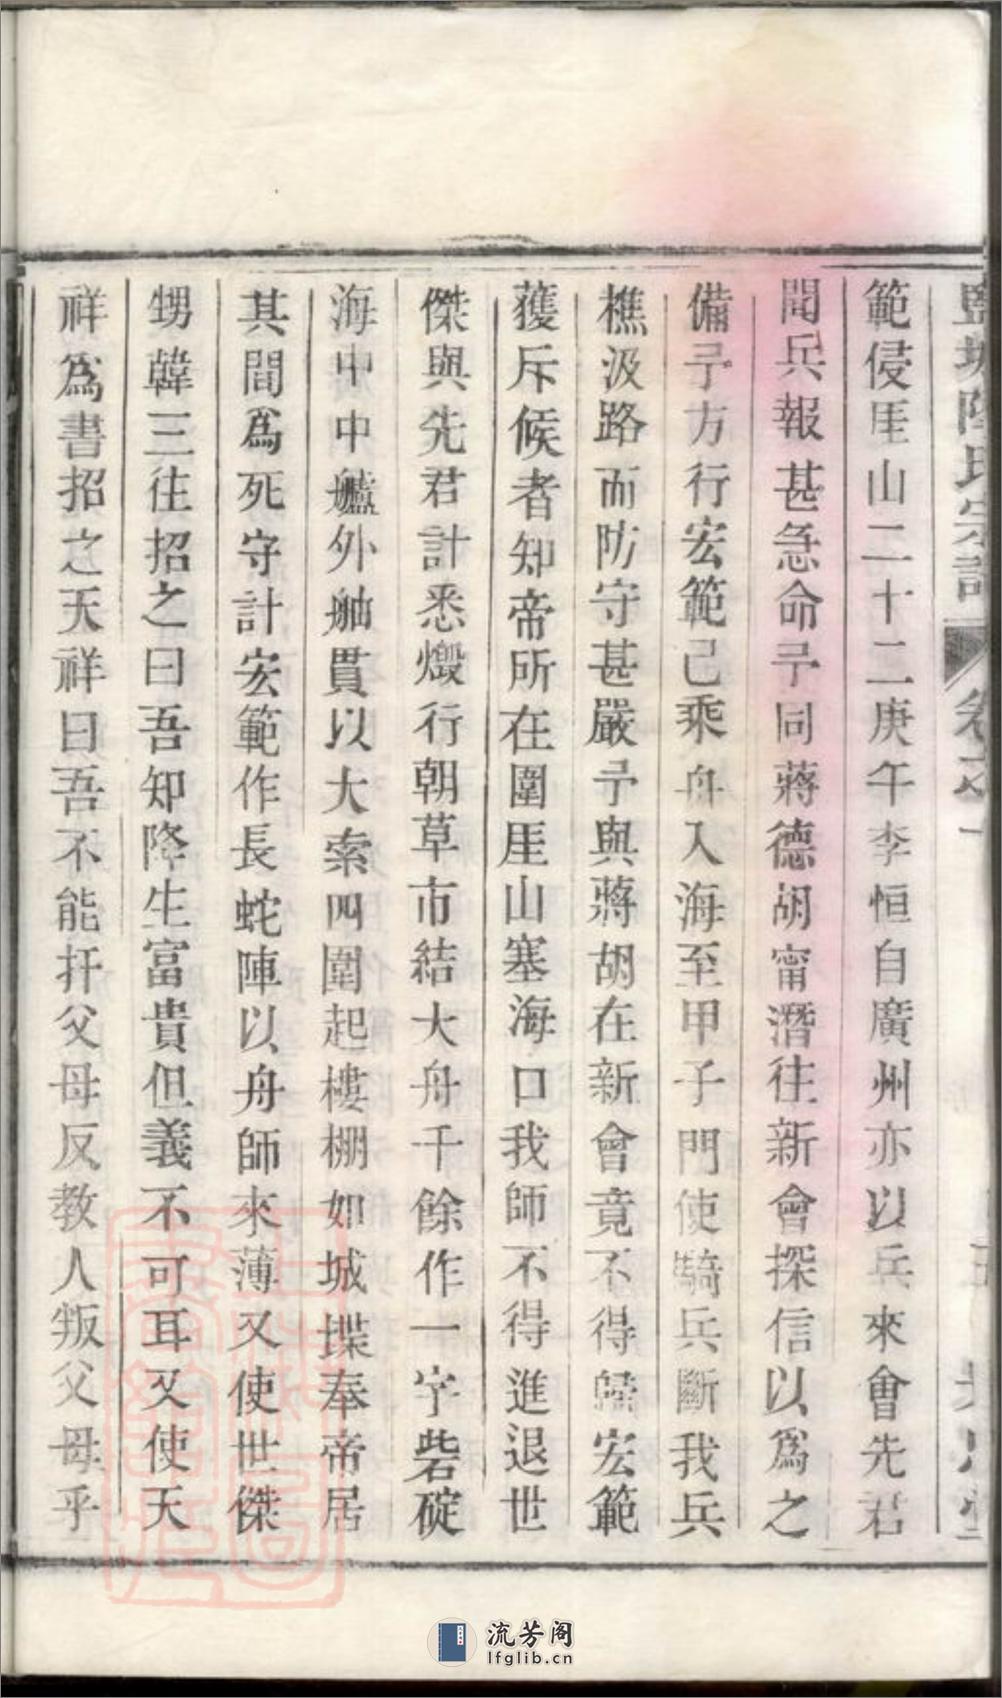 鹽城陸氏宗譜 卷之一
範侵厓山二十二庚午李恒自廣州亦以兵來會先君
聞兵報甚急命予同蔣德胡甯潛往新會探信以為之
備予方行宏範已乘舟入海至甲子門使騎兵斷我兵
樵汲路而防守甚嚴予與蔣胡在新會竟不得歸宏範
獲斥候者知帝所在圍厓山塞海口我師不得進退世
傑與先君計悉燬行朝草市結大舟千餘作一字砦碇
海中中艫外舳貫以大索四圍起樓棚如城堞奉帝居
其間為死守計宏範作長蛇陣以舟師來薄又使世傑
甥韓三往招之曰吾知降生富貴但義不可耳又使天
祥為書招之天祥曰吾不能扞父母反教人叛父母乎
流芳阁
lfglib.cn